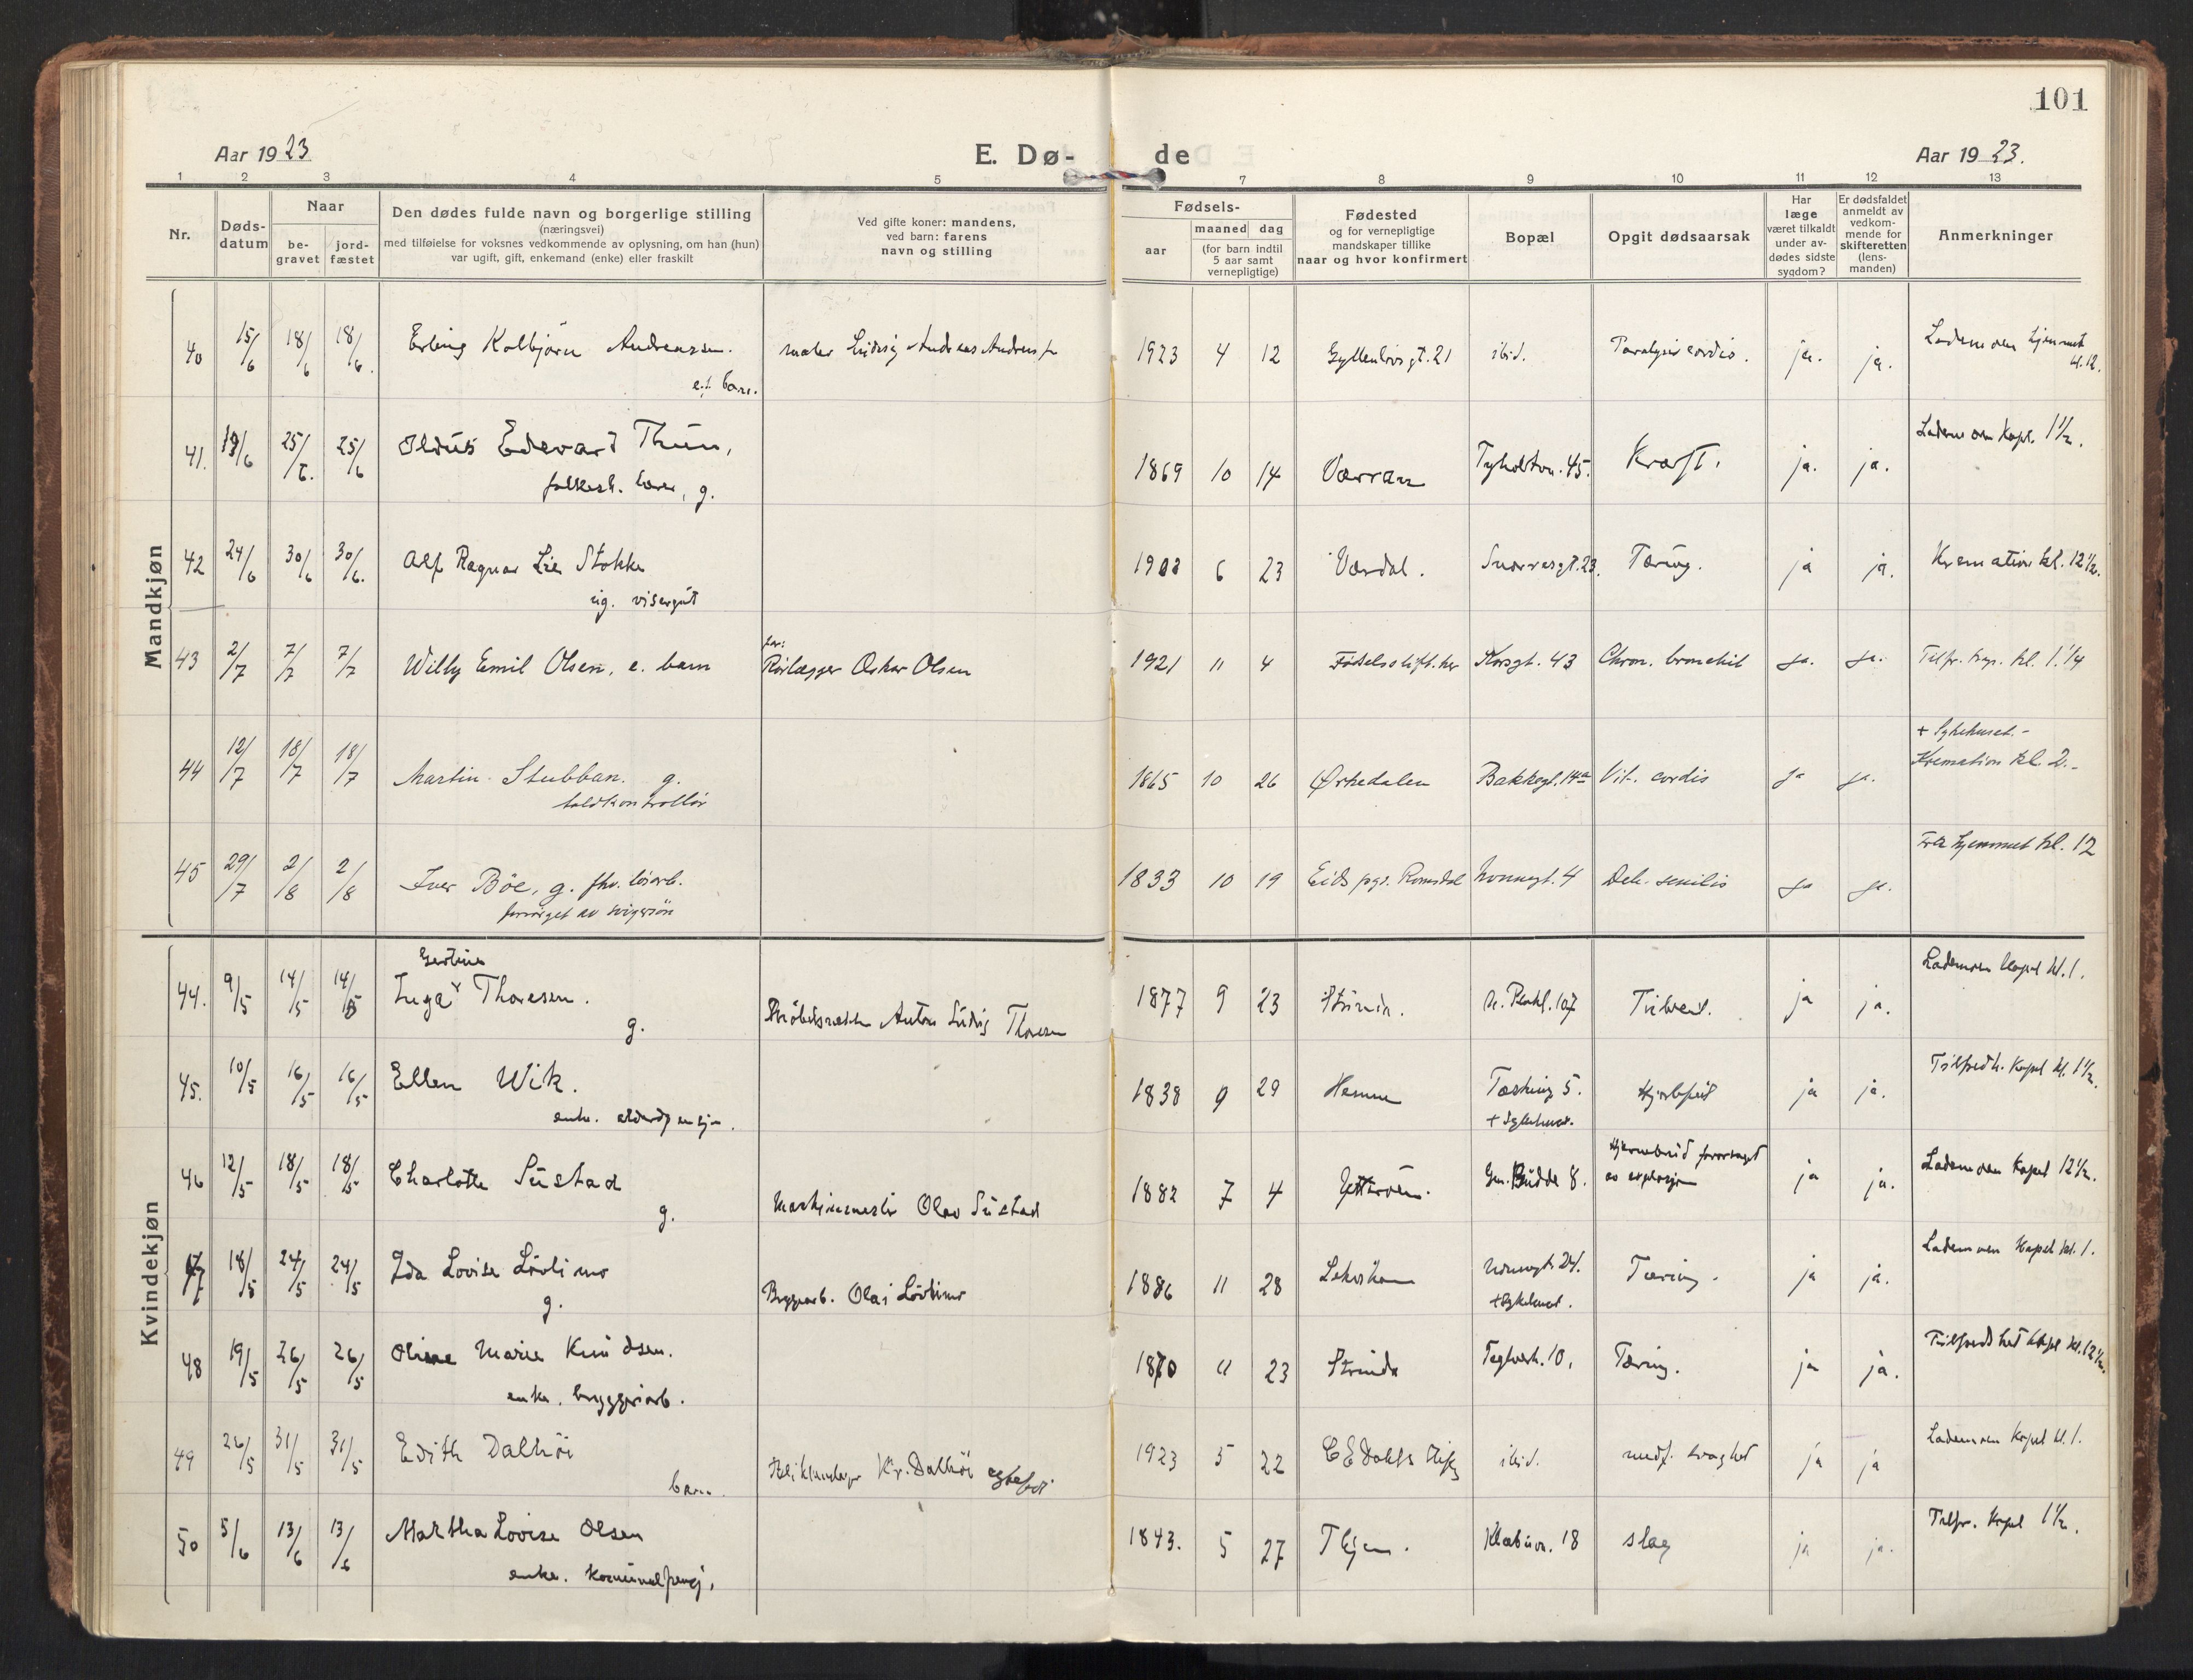 101
Aar 1923
E. Dø-
de
Aar 1923.
1 2 3 4 5 7 8 9 10 11 12 13
Nr.
Døds-
datum
Naar
be-
gravet
jord-
fæstet
Den dødes fulde navn og borgerlige stilling
(næringsvei)
med tilføielse for voksnes vedkommende av oplysning, om han (hun)
var ugift, gift, enkemand (enke) eller fraskilt
Ved gifte koner: mandens,
ved barn: farens
navn og stilling
Fødsels-
aar
maaned dag
(for barn indtil
5 aar samt
vernepligtige)
Fødested
og for vernepligtige
mandskaper tillike
naar og hvor konfirmert
Bopæl
Opgit dødsaarsak
Har
læge
været tilkaldt
under av-
dødes sidste
sygdom?
Er dødsfaldet
anmeldt av
vedkom-
mende for
skifteretten
(lens-
manden)
Anmerkninger
Mandkjøn
40 15/6 18/6 18/6. Erling Kolbjörn Andreassen. maler Andreas 1923 4 12 21 ibid. Paralysis cordis. ja. ja. Lademoen hjemmet
kl. 12.
barn.
41. 19/6 25/6. 25/6 Edevard Thun, 1869 10 14 Værran 45. Kræft. ja. ja. Lademoen Kapel. 1½.
folkesk. lærer, g.
42 24/6 30/6 30/6. Alf Ragnar Lie Stokke 6 23 Værdal. Snorresgt. 23. Tæring. ja ja. Kremation kl. 12½.
ug. visergut
43 2/7 7/7 7/7 Willy Emil Olsen, e. barn far:
Rørlægger Oskar Olsen 1921 11 4 Fødselsstift. her Korsgt. 43 Chron. bronchit ja. ja. Tilfr. kap. kl. 1.¼
44 12/7 18/7 18/7 Martin Stubban. g. 1865 10 26 Ørkedalen Bakkegt. 14a Vit. cordis ja ja. + Sykehuset.-
Kremation kl. 2.-
toldkontrollör
45 29/7 2/8 2/8 Iver Böe, g. fhv. 1833 10 19 Eids pgr. Romsdal Nonnegt. 4 Deb. senilis ja ja. Fra hjemmet kl. 12
forsörget av svigersön
Kvindekjøn
Gertine
44. 9/5 14/5 14/5 Inga Thoresen. g. Anton Ludvig Thoresen 1877 9 23 Strinda. ja ja. Lademoen Kapel kl. 1.
45. 10/5 16/5 16/5 Ellen Wik. 1838 9 29 Hemne 5.
+ Sykehuset. ja ja. Tilfredh. Kapel kl. 1½.
enke.
46 12/5 18/5 18/5 Charlotte Sustad g. Maskinmester Olav Sustad 1882 7 4 Ytterøen. Gen. Budde 8. ja ja. Lademoen Kapel 12½.
47 18/5 24/5 24/5 Ida Lovise Lövlimo g. Bryggearb. Olai Lövlimo 1886 11 28 Nonnegt. 24.
+ Sykehuset. Tæring. ja ja. Lademoen Kapel kl. 1.
48 19/5 26/5 26/5 Oline Marie Knudsen. 1870 11 23 Strinda Teglverk. 10. Tæring. ja ja. Tilfredshet Kapel kl. 12½.
enke. bryggeriarb.
49 26/5 31/5 31/5 Edith Dalhöi barn. Kr. Dalhöi 1923 5 22 C E Dahls Stift. ibid. medf. svaghet ja ja Lademoen Kapel kl. 1.
50 5/6 13/6 13/6 Martha Lovise Olsen 1843. 5 27 18 slag ja ja. Tilfr. Kapel 1½.
enke.